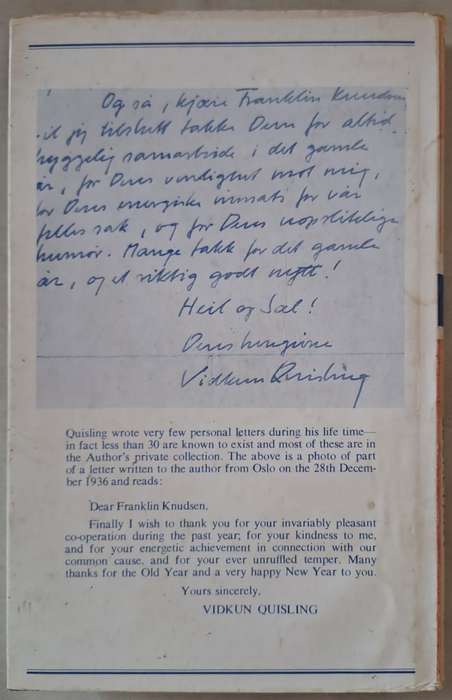 Og så, kjære Franklin Knudsen
vil jeg tilslutt takke Dem for altid
hyggelig samarbeide i det gamle
år, for Deres venlighet mot mig,
for Deres energiske innsats for vår
felles sak, og for Deres uopslitelige
humør. Mange takk for det gamle
år, og et riktig godt nytt!
Heil og Sæl!
Deres hengivne
Vidkun Quisling
Quisling wrote very few personal letters during his life time—
in fact less than 30 are known to exist and most of these are in
the Author's private collection. The above is a photo of part
of a letter written to the author from Oslo on the 28th Decem-
ber 1936 and reads:
Dear Franklin Knudsen,
Finally I wish to thank you for your invariably pleasant
co-operation during the past year; for your kindness to me,
and for your energetic achievement in connection with our
common cause, and for your ever unruffled temper. Many
thanks for the Old Year and a very happy New Year to you.
Yours sincerely,
VIDKUN QUISLING